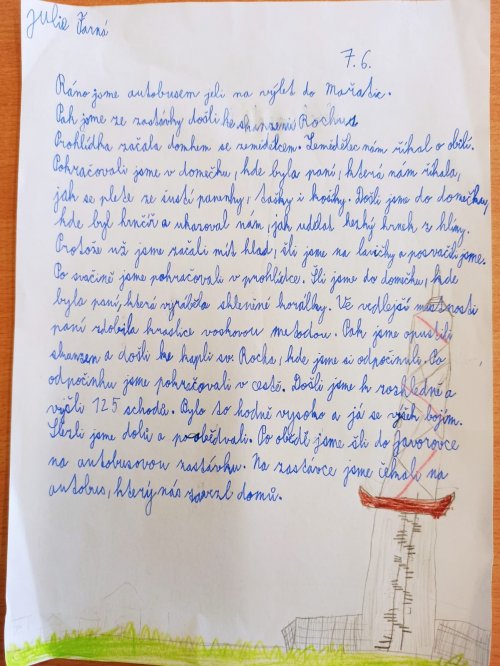 Julie Farná
7.6.
Ráno jsme autobusem jeli na výlet do Mařatic.
Pak jsme ze zastávky došli ke skanzenu Rochus
Prohlídka začala domkem se zemědělcem. Zemědělec nám říkal o obilí.
Pokračovali jsme v domečku, kde byla paní, která nám říkala,
jak se plete ze šustí panenky, tašky i košíky. Došli jsme do domečku,
kde byl hrnčíř a ukazoval nám, jak udělat hezký hrnek z hlíny.
Protože už jsme začali mít hlad, šli jsme na lavičky a posvačili jsme.
Po svačině jsme pokračovali v prohlídce. Šli jsme do domečku, kde
byla paní, která vyráběla skleněné korálky. Ve vedlejší místnosti
paní zdobila kraslice voskovou metodou. Pak jsme opustili
skanzen a došli ke kapli sv. Rocha, kde jsme si odpočinuli. Po
odpočinku jsme pokračovali v cestě. Došli jsme k rozhledně a
vyšli 125 schodů. Bylo to hodně vysoko a já se výšek bojím.
Slezli jsme dolů a poobědvali. Po obědě jsme šli do Javorovce
na autobusovou zastávku. Na zastávce jsme čekali na
autobus, který nás zavezl domů.